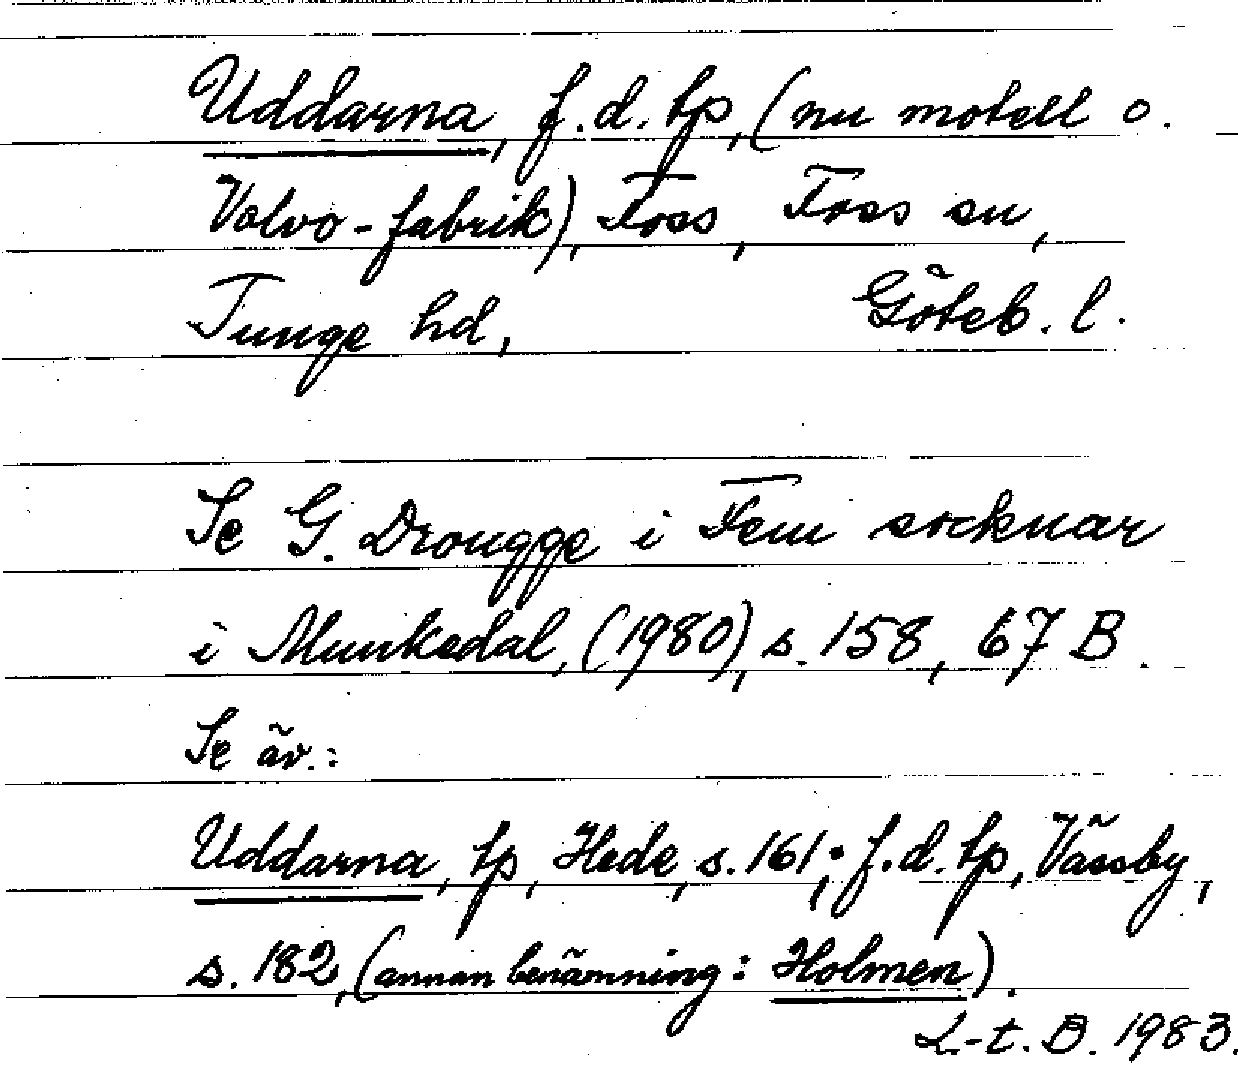 Uddarna, f.d. tp, (nu motell o.
Volvo-fabrik), Foss, Foss sn,
Tunge hd, Göteb. l.
Se G. Drougge i Fem socknar
i Munkedal, (1980), s. 158, 67 B.
Se äv.:
Uddarna, tp, Hede, s. 161; f.d. tp, Vässby,
s. 182, (annan benämning: Holmen).
L-t. B. 1983.